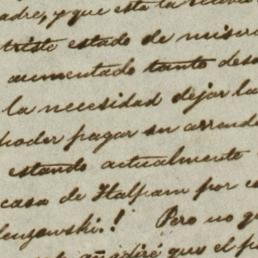 adre, y que esta la
triste estado de miser
aumentado tanto des
la necesidad dejar la
poder pagar su arrend
estando actualmente
casa de Italpam por e
Pero no
añadiré que el p